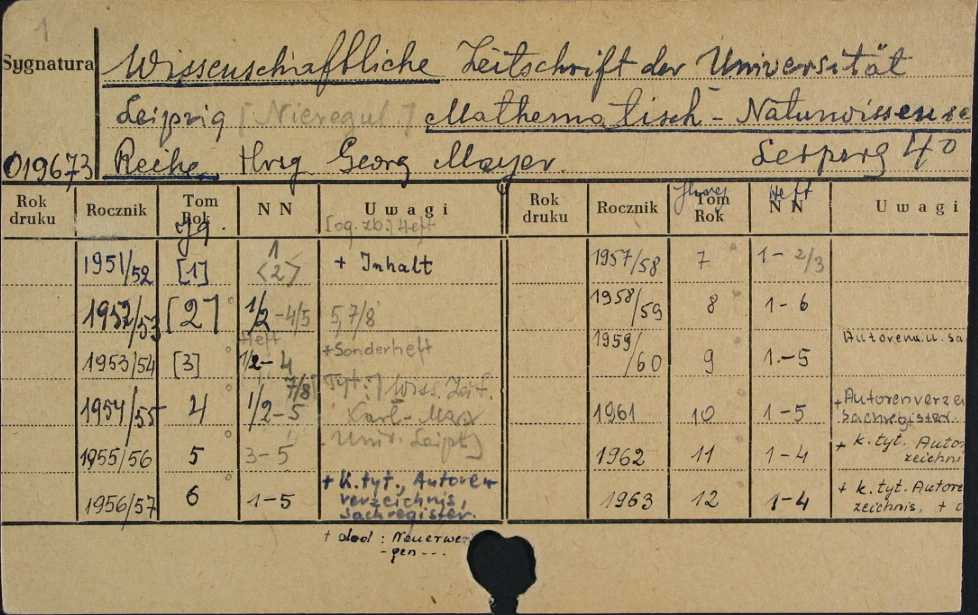 1
Sygnatura
Wissenschaftliche Zeitschrift der Universität
Leipzig [Nieregul.] Mathematisch-Naturwissensc
019673 Reihe. Hrsg Georg Mayer. Leipzig 4°
Rok druku Rocznik Tom Rok Jg. N N Uwagi
[og. zb.] Heft
1951/52 [1] 1 <2> + Inhalt
1952/53 [2] 1/2-4/5 5,7/8
1953/54 [3] Heft 1/2-4 +Sonderheft
1954/55 4 1/2-5 7/8 [Tyt.:] Wiss. Zeit.
Karl-Marx
Univ. Leipz]
1955/56 5 3-5
1956/57 6 1-5 + k.tyt., Autoren
verzeichnis,
Sachregister.
+ dod : Neuerwer
-gen---
Rok druku Rocznik Tom Rok N N Heft Uwagi
1957/58 7 1-2/3
1958/59 8 1-6
1959/60 9 1-5 Autorenu.u. sa
1961 10 1-5 +Autorenverzei
Sachregister.
1962 11 1-4 + k.tyt. Autor
zeichni
1963 12 1-4 + k.tyt. Autore
zeichnis, +